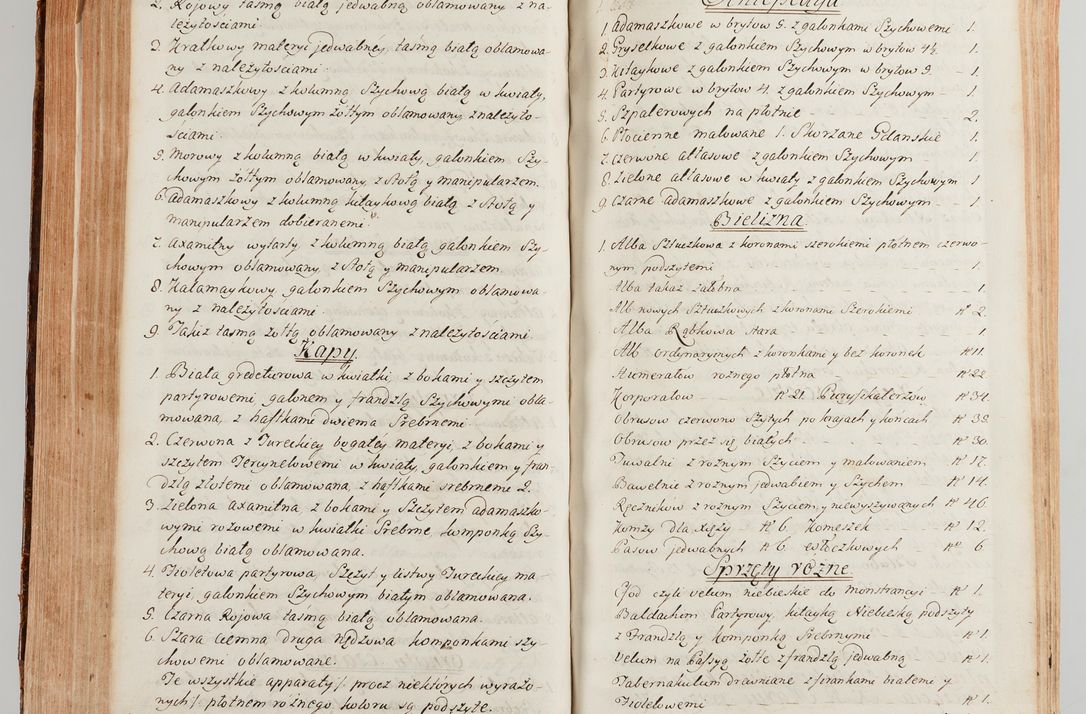 2. Kojowy taśmą białą jedwabną oblamowany z na-
leżytościami.
3. Kratkowy materyi jedwabney, taśmą białą oblamowa-
ny z należytościami.
4. Adamaszkowy z kolumną Szychową białą w kwiaty,
galonkiem Szychowym żółtym oblamowany, z należyto-
ściami.
5. Morowy z kolumną białą w kwiaty, galonkiem Szy-
chowym żółtym oblamowany, z Stołą y manipularzem.
6. adamaszkowy z kolumną kitaykową białą z Stołą y
manipularzem dobieranemi.
7. Axamitny wytarty z kolumną białą galonkiem Szy-
chowym oblamowany, z Stołą y manipularzem.
8. Kałamaykowy, galonkiem Szychowym oblamowa-
ny z należytościami.
9. Takiż taśmą żółtą oblamowany z należytościami.
Kapy.
1. Biała gredeturowa w kwiatki z bokami y szczytem
partyrowemi galonem y frandzlą Szychowymi obla-
mowana, z haftkami dwiema Srebrnemi.
2. Czerwona z Tureckiey bogatey materyi, z bokami y
szczytem Tercynelowemi w kwiaty, galonkiem y fran
dzlą złotemi oblamowana z haftkami srebrnemi 2.
3. Zielona axamitna, z bokami y Szczytem adamaszko-
wymi rożowemi w kwiatki Srebrne, komponką Szy-
chową białą oblamowana.
4. Fioletowa partyrowa, Szczyt y listwy Tureckiey ma-
teryi, galonkiem Szychowym białym oblamowana.
5. Czarna Kojowa taśmą białą oblamowana.
6. Szara ciemna, druga rędzowa komponkami szy-
chowemi oblamowane.
Te wszystkie apparaty /: procz niektórych wyrażo-
nych :/ płotnem różnego koloru są podszyte.
Antepedya
1. Adamaszkowe w brytow 5. z galonkami Szychowemi 1.
2. Gryselkowe z galonkiem Szychowym w brytow 4½. 1.
3. Kitaykowe z galonkiem Szychowym w brytow 5. - - 1.
4. Partyrowe w brytow 4. z galonkiem Szychowym - - 1.
5. Szpalerowych na płotnie - - - 2.
6. Płocienne malowane 1. Skorzane Gdanskie 1.
7. czerwone atłasowe z galonkiem Szychowym 1.
8. Zielone atłasowe w kwiaty z galonkiem Szychowym 1
9. Czarne adamaszkowe z galonkiem Szychowym - - 1
Bielizna
1. Alba Sztuczkowa z koronami szerokiemi płotnem czerwo-
nym podszytemi - - - 1.
Alba takaż żałobna - - - 1.
Alb nowych Sztuczkowych z koronami Szerokiemi No 2.
Alba Rąbkowa stara - - - 1
Alb ordynarymych z koronkami y bez koronek No 11.
Humerałow rożnego płotna - No 22
Korporałow - - No 21. Puryfikaterzow No 34.
Obrusow czerwono Szytych po krajach y końcach No 38.
Obrusow przez się białych - - - No 30.
Tuwalni z rożnym Szyciem y malowaniem No 17.
Bawełnic z rożnym jedwabiem y Szychem No 14.
Ręczników z rożnym Szyciem, y niewyszywanych No 46.
Komży dla Xięży No 6. Komeszek - - No 12.
Pasow jedwabnych No 6. włoczkowych - No 6
Sprzęty różne.
God czyli velum niebieskie do monstrancyi - No 1.
Baldachim Partyrowy, kitayką Niebieską podszyty
z Frandzlą y komponką Srebrnymi - No 1.
Velum na Passyą żółte z frandzlą jedwabną - No 1.
Tabernakulum drewniane z firankami białemi y
Fioletowemi - - - No 1.